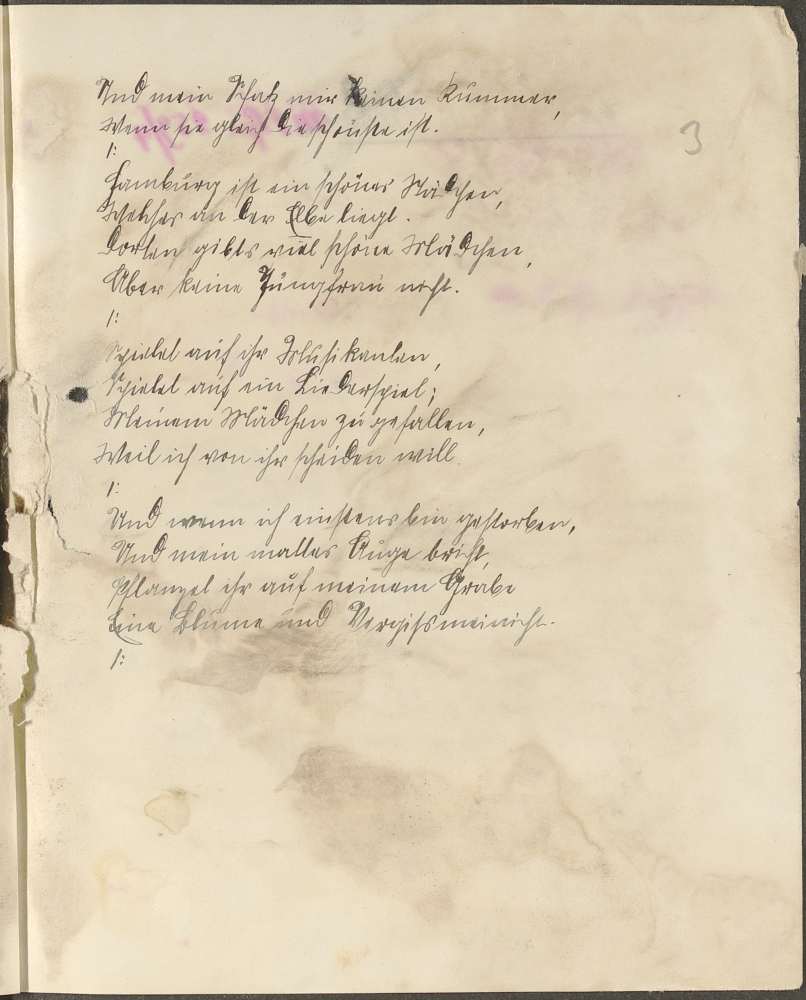 Und mein Schatz mir keinen Kummer,
Wenn sie gleich die schönste ist.
/:
3
Hamburg ist ein schönes Städchen,
Welches an der Elbe liegt.
Dorten gibts viel schöne Mädchen,
Aber keine Jungfrau nicht.
/:
Spielet auf ihr Musikanten,
Spielet auf ein Liederspiel;
Meinem Mädchen zu gefallen,
Weil ich von ihr scheiden will.
/:
Und wenn ich einstens bin gestorben,
Und mein mattes Auge bricht,
Pflanzet ihr auf meinem Grabe
Eine Blume und Vergissmeinicht.
/: